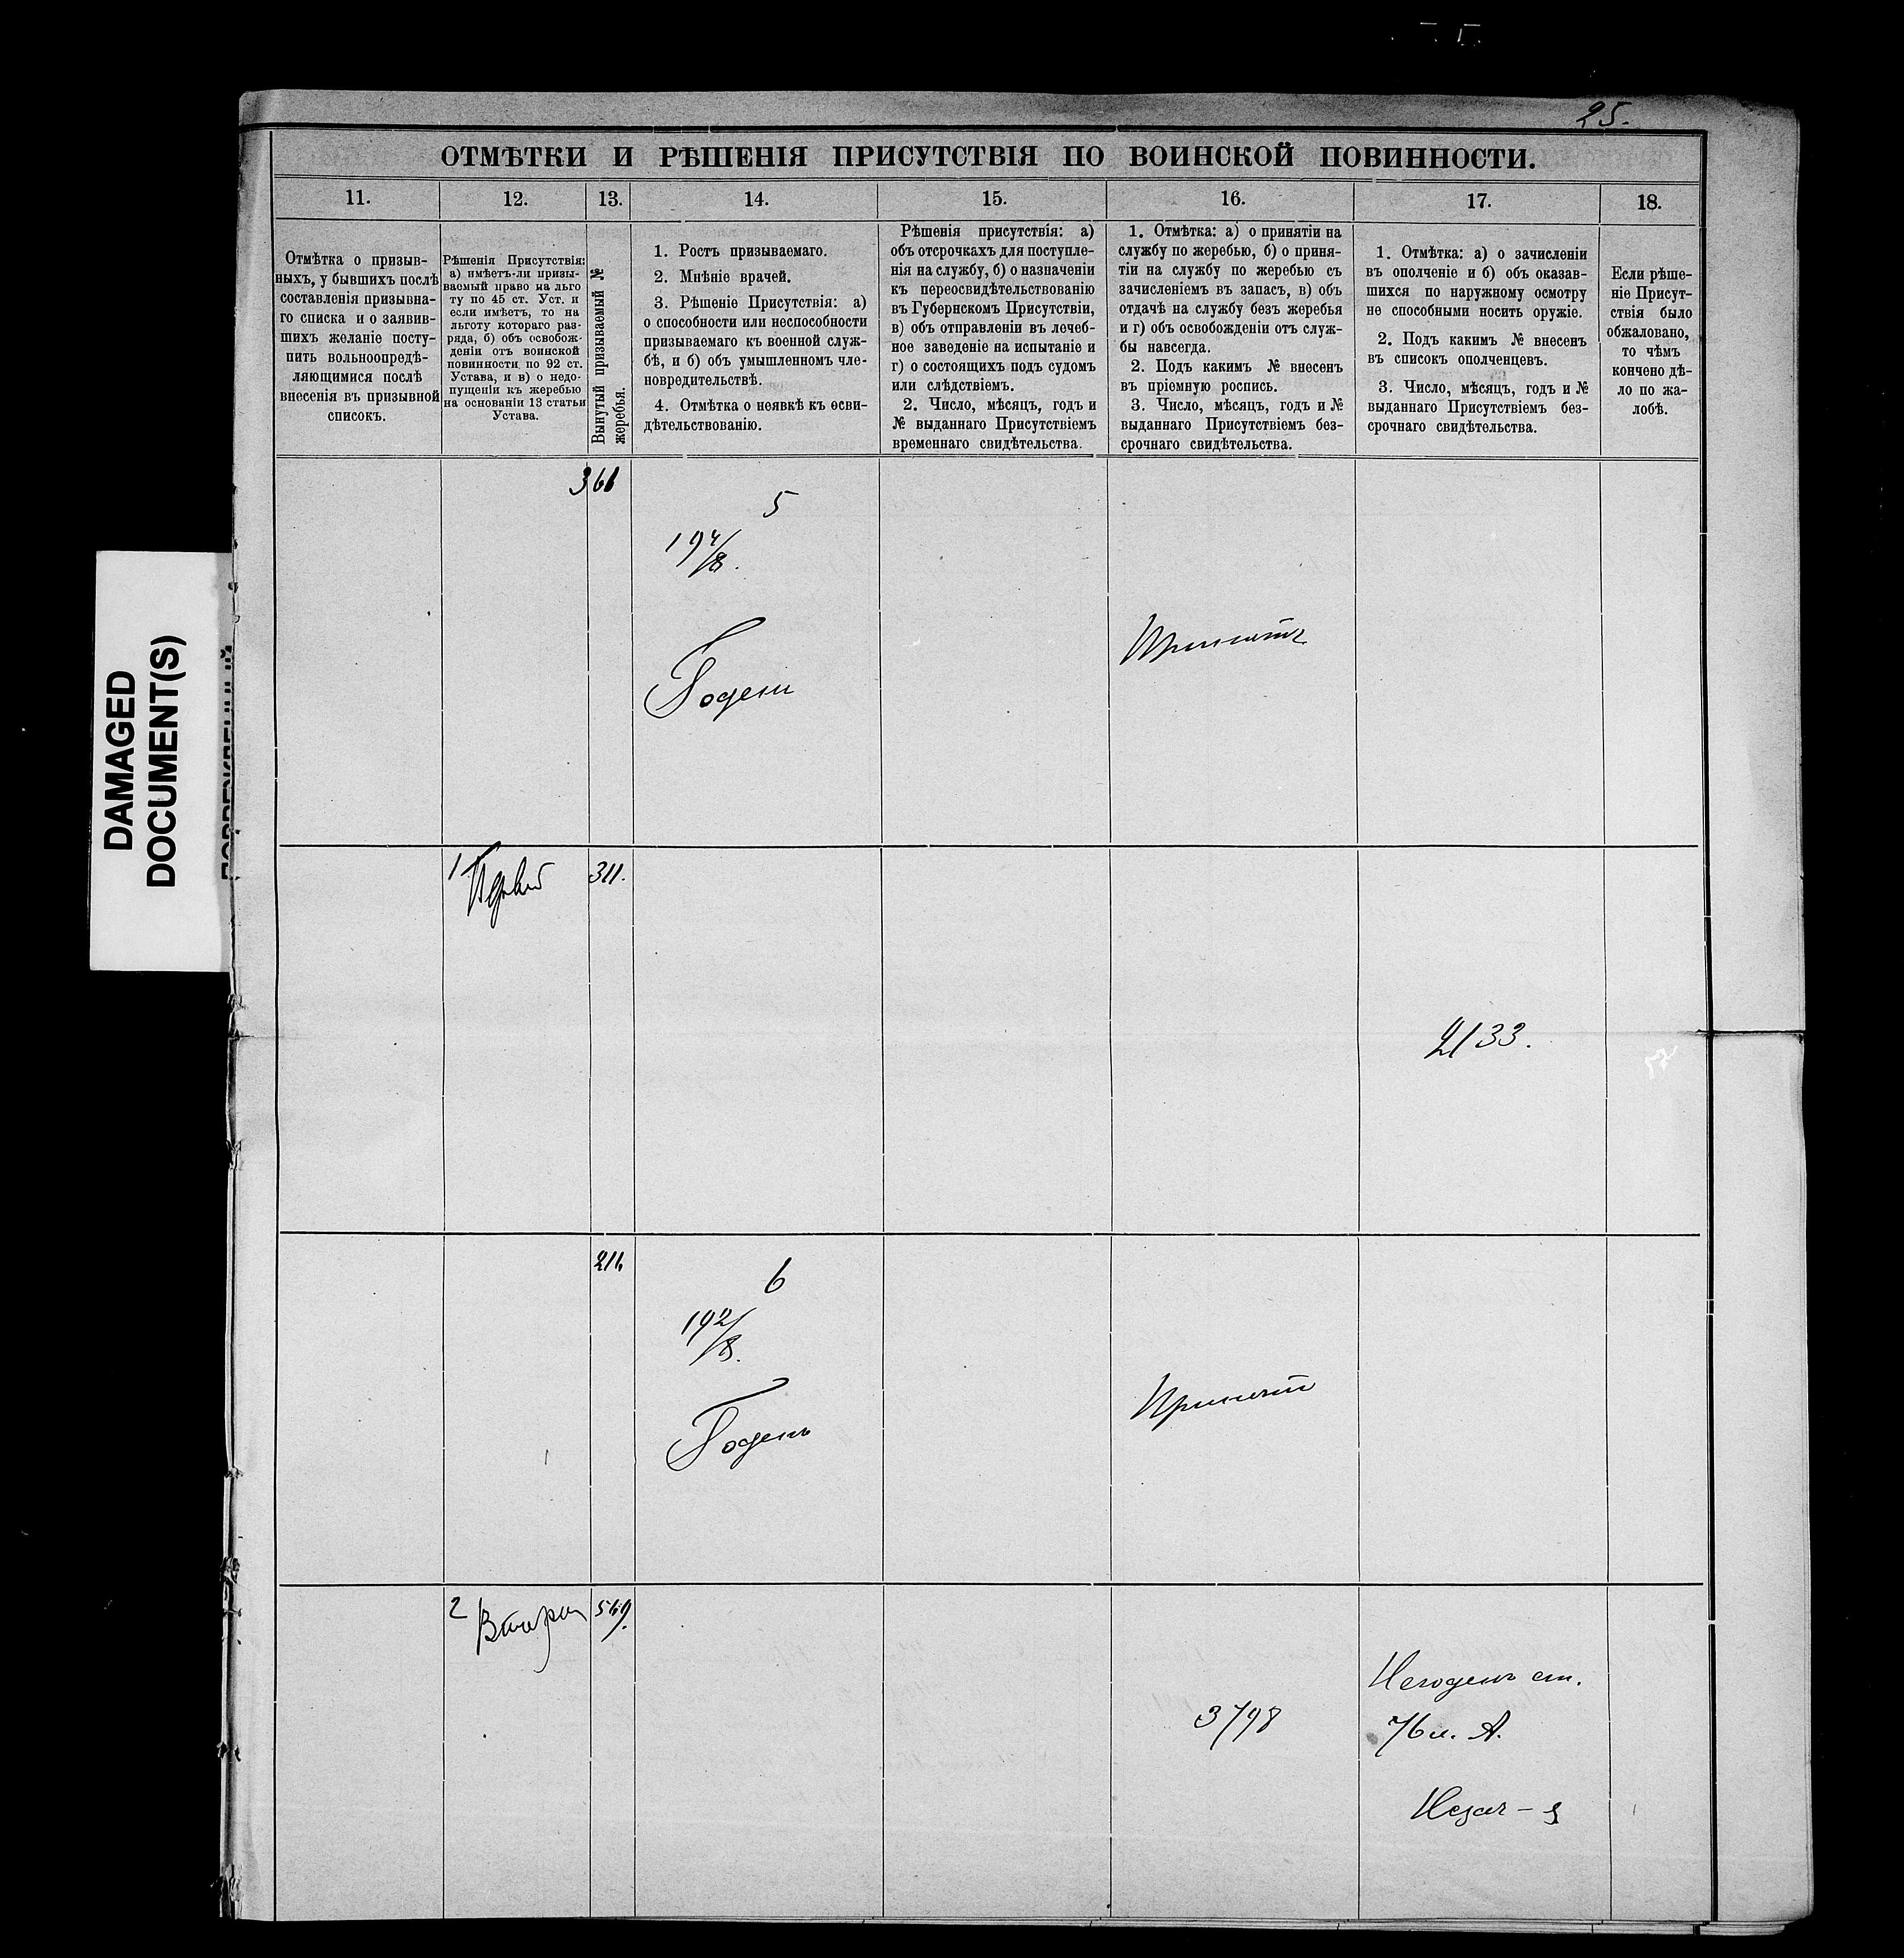 25.
ОТМѢТКИ И РѢШЕНІЯ ПРИСУТСТВІЯ ПО ВОИНСКОЙ ПОВИННОСТИ.
11.
12.
13.
14.
15.
16.
17.
18.
Отмѣтка о призыв-
ныхъ, у бывшихъ послѣ
составленія призывна-
го списка и о заявив-
шихъ желаніе посту-
пить вольноопредѣ-
ляющимися послѣ
внесенія въ призывной
списокъ.
Рѣшенія Присутствія:
а) имѣетъ-ли призы-
ваемый право на льго
ту по 45 ст. Уст. и
если имѣетъ, то на
льготу котораго раз-
ряда, б) объ освобож-
деніи отъ воинской
повинности по 92 ст.
Устава, и в) о недо-
пущеніи къ жеребью
на основаніи 13 статьи
Устава.
Вынутый призываемый №
жеребья.
1. Ростъ призываемаго.
2. Мнѣніе врачей.
3. Рѣшеніе Присутствія: а)
о способности или неспособности
призываемаго къ военной служ-
бѣ, и б) объ умышленномъ чле-
новредительствѣ.
4. Отмѣтка о неявкѣ къ осви-
дѣтельствованію.
Рѣшенія присутствія: а)
объ отсрочкахъ для поступле-
нія на службу, б) о назначеніи
къ переосвидѣтельствованію
въ Губернскомъ Присутствіи,
в) объ отправленіи въ лечеб-
ное заведеніе на испытаніе и
г) о состоящихъ подъ судомъ
или слѣдствіемъ.
2. Число, мѣсяцъ, годъ и
№ выданнаго Присутствіемъ
временнаго свидѣтельства.
1. Отмѣтка: а) о принятіи на
службу по жеребью, б) о приня-
тіи на службу по жеребью съ
зачисленіемъ въ запасъ, в) объ
отдачѣ на службу безъ жеребья
и г) объ освобожденіи отъ служ-
бы навсегда.
2. Подъ какимъ № внесенъ
въ пріемную роспись.
3. Число, мѣсяцъ, годъ и №
выданнаго Присутствіемъ без-
срочнаго свидѣтельства.
1. Отмѣтка: а) о зачисленіи
въ ополченіе и б) объ оказав-
шихся по наружному осмотру
не способными носить оружіе.
2. Подъ какимъ № внесенъ
въ списокъ ополченцевъ.
3. Число, мѣсяцъ, годъ и №
выданнаго Присутствіемъ без-
срочнаго свидѣтельства.
Если рѣше-
ніе Присут-
ствія было
обжаловано,
то чѣмъ
кончено дѣ-
ло по жа-
лобѣ.
366
5
19 4/8.
Годенъ
Принятъ
1 Первый
311.
2133.
216
6
19 2/8.
Годенъ
Принятъ
2 Второй
569.
3798
Негоденъ ст.
76 л. А.
DAMAGED
DOCUMENT(S)